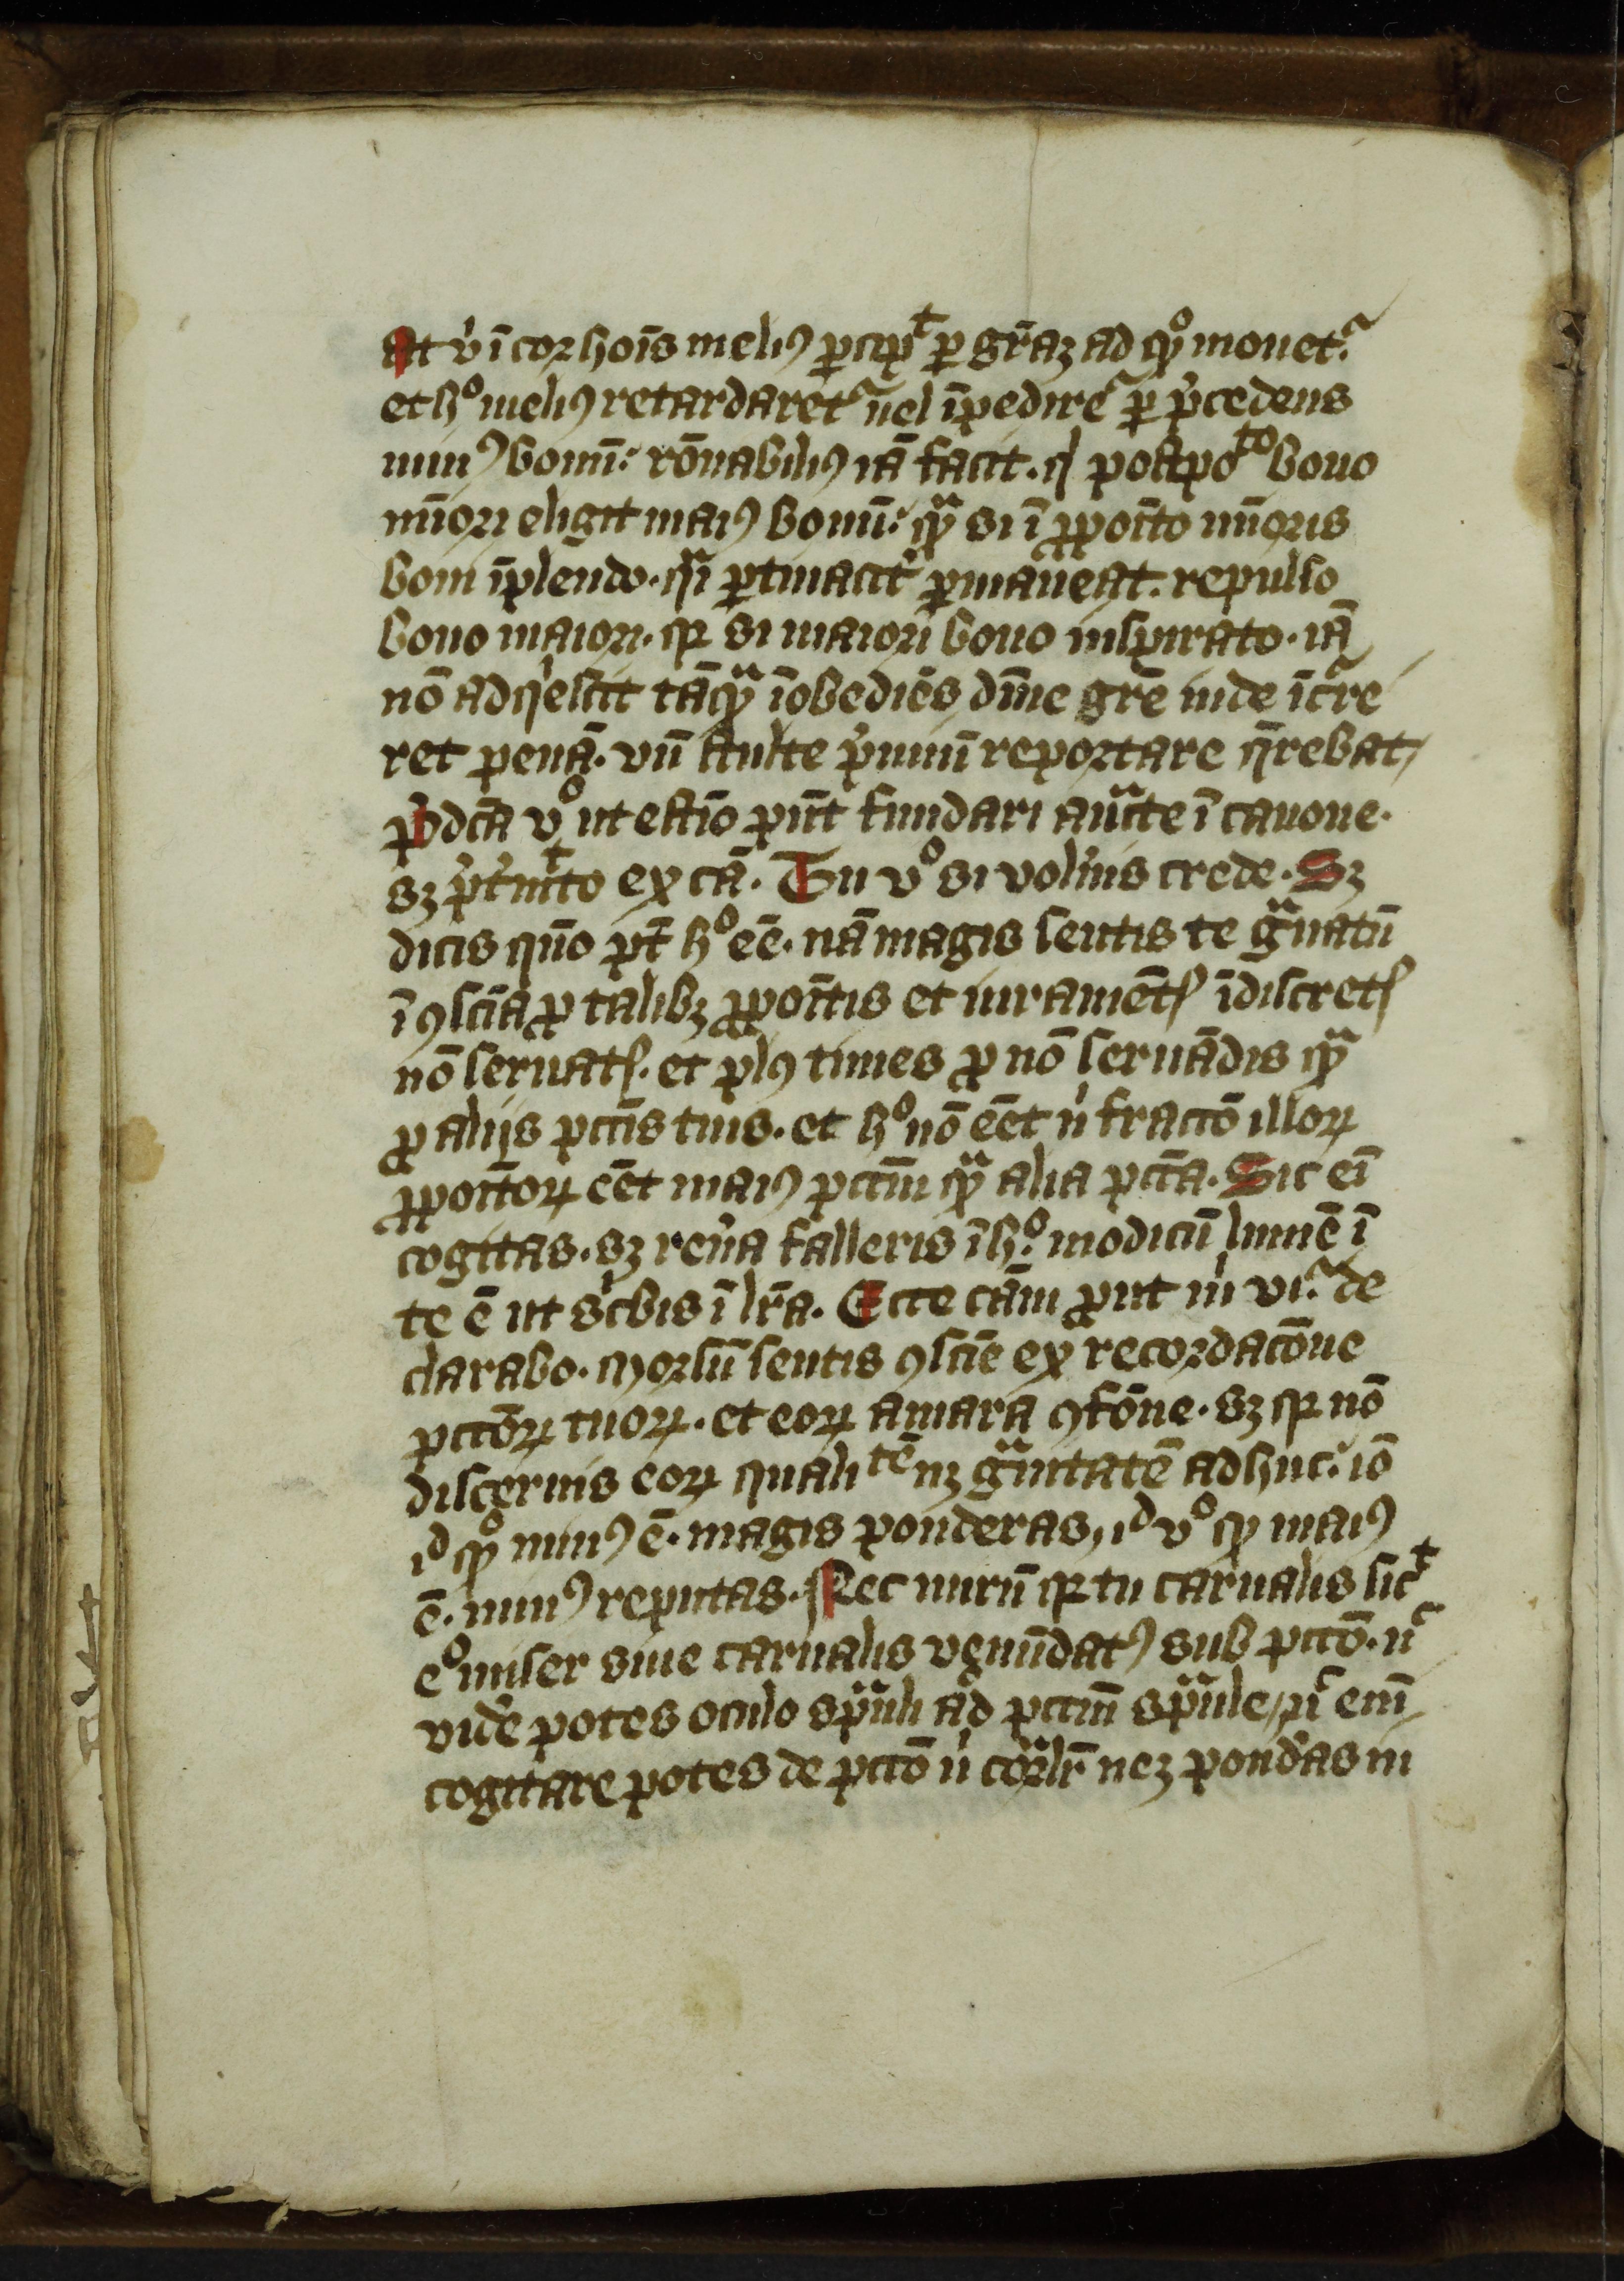 At ubi ī cor hoīs meliꝯ ꝑcipit̄ ꝑ gr̄aꝫ ad qͦ mouet᷑
et hͦ meliꝯ retardaret᷑ uel īpediret᷑ ꝑ p̄cedens
minꝯ bonū: rōnabiliꝯ iā facit. qͥ postpoᵗᵒ bono
mīori eligit maiꝯ bonū: qᷓ si ī ꝓpoīto mīoris
boni īplendo. qͣi ꝑtinacit᷑ ꝑmaneat. repulso
bono maiori. qꝛ si maiori bono inspirato. iā
nō adqͥescit tāqᷓ īobediēs dīne grē inde īcᷣre
ret penā. vn̄ stulte p̄miū reportare q̄rebat
p̄dcā vͦ ut estīo pn̄t fundari auᷓcte ī canone.
sꝫ p̄t̄mitto ex cā. Tu vͦ si vol̓uis crede. Sꝫ
dicis quō pt̄ hͦ eē. nā magis sentis te gᷓuatū
ī ꝯsciā ꝓ talibꝫ ꝓpoītis et iuramētꝭ īdiscretꝭ
nō seruatꝭ. et plꝯ times ꝓ nō seruādis qᷓ
ꝓ alijs pctīs tuis. et hͦ nō eēt nͥ fractō illoꝝ
ꝓpoītoꝝ eēt maiꝯ pctm̄ qᷓ alia pctā. Sic eī
cogitas. sꝫ reu̓a falleris ī hͦ. modicū lumē ī
te ē ut scͥbis ī lr̄a. Ecce cām prout mͥ vr᷑ de
clarabo. Morsū sentis ꝯsciē ex recordacōne
pctōꝝ tuoꝝ. et eoꝝ amara ꝯfōne. sꝫ qꝛ nō
discernis eoꝝ qualiᵗᵉ̄ nꝫ gᷓuitatē adhuc: iō
id qͦ minꝯ ē. magis ponderas, id vͦ qͦ maiꝯ
ē. minꝯ reputas. Nec mirū qꝛ tu carnalis sicᵗ
eͦ miser siue carnalis venūdatꝯ sub pctō. nᶜ
vide᷑ potes oculo spūali ad pctm̄ spūale, nͨ enī
cogitare potes de pctō nͥ corᷓlr̄ neꝫ pond̓as ni